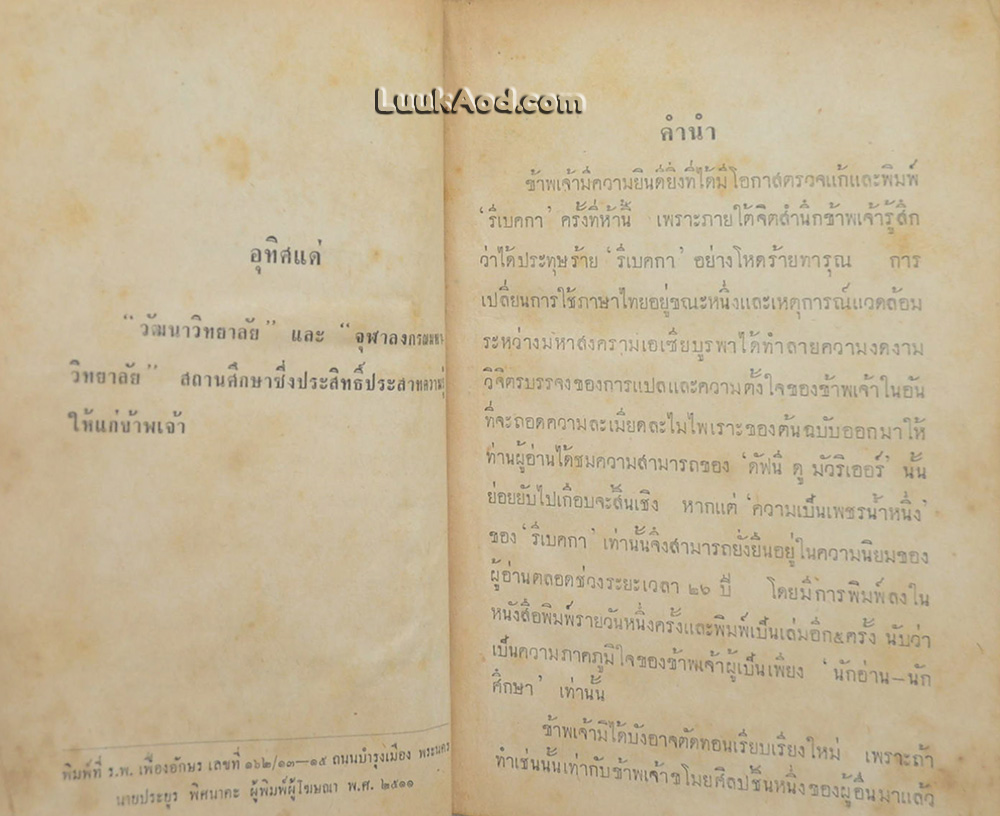 LuukAod.com
อุทิศแด่
“วัฒนาวิทยาลัย” และ “จุฬาลงกรณมหา
วิทยาลัย” สถานศึกษาซึ่งประสิทธิ์ประสาทความรู้
ให้แก่ข้าพเจ้า
พิมพ์ที่ ร.พ. เฟื่องอักษร เลขที่ ๑๖๒/๑๓—๑๕ ถนนบำรุงเมือง พระนคร
นายประยูร พิศนาคะ ผู้พิมพ์ผู้โฆษณา พ.ศ. ๒๕๑๑
คำนำ
ข้าพเจ้ามีความยินดียิ่งที่ได้มีโอกาสตรวจแก้และพิมพ์
‘รีเบคกา’ ครั้งที่ห้านี้ เพราะภายใต้จิตสำนึกข้าพเจ้ารู้สึก
ว่าได้ประทุษร้าย ‘รีเบคกา’ อย่างโหดร้ายทารุณ การ
เปลี่ยนการใช้ภาษาไทยอยู่ขณะหนึ่งและเหตุการณ์แวดล้อม
ระหว่างมหาสงครามเอเซียบูรพาได้ทำลายความงดงาม
วิจิตรบรรจงของการแปลและความตั้งใจของข้าพเจ้าในอัน
ที่จะถอดความละเมียดละไมไพเราะของต้นฉบับออกมาให้
ท่านผู้อ่านได้ชมความสามารถของ ‘ดัฟนี ดู มัวริเออร์’ นั้น
ย่อยยับไปเกือบจะสิ้นเชิง หากแต่ ‘ความเป็นเพชรน้ำหนึ่ง’
ของ ‘รีเบคกา’ เท่านั้นจึงสามารถยั่งยืนอยู่ในความนิยมของ
ผู้อ่านตลอดช่วงระยะเวลา ๒๖ ปี โดยมีการพิมพ์ลงใน
หนังสือพิมพ์รายวันหนึ่งครั้งและพิมพ์เป็นเล่มอีก๕ครั้ง นับว่า
เป็นความภาคภูมิใจของข้าพเจ้าผู้เป็นเพียง ‘นักอ่าน—นัก
ศึกษา’ เท่านั้น
ข้าพเจ้ามิได้บังอาจตัดทอนเรียบเรียงใหม่ เพราะถ้า
ทำเช่นนั้นเท่ากับข้าพเจ้าขโมยศิลปชิ้นหนึ่งของผู้อื่นมาแล้ว